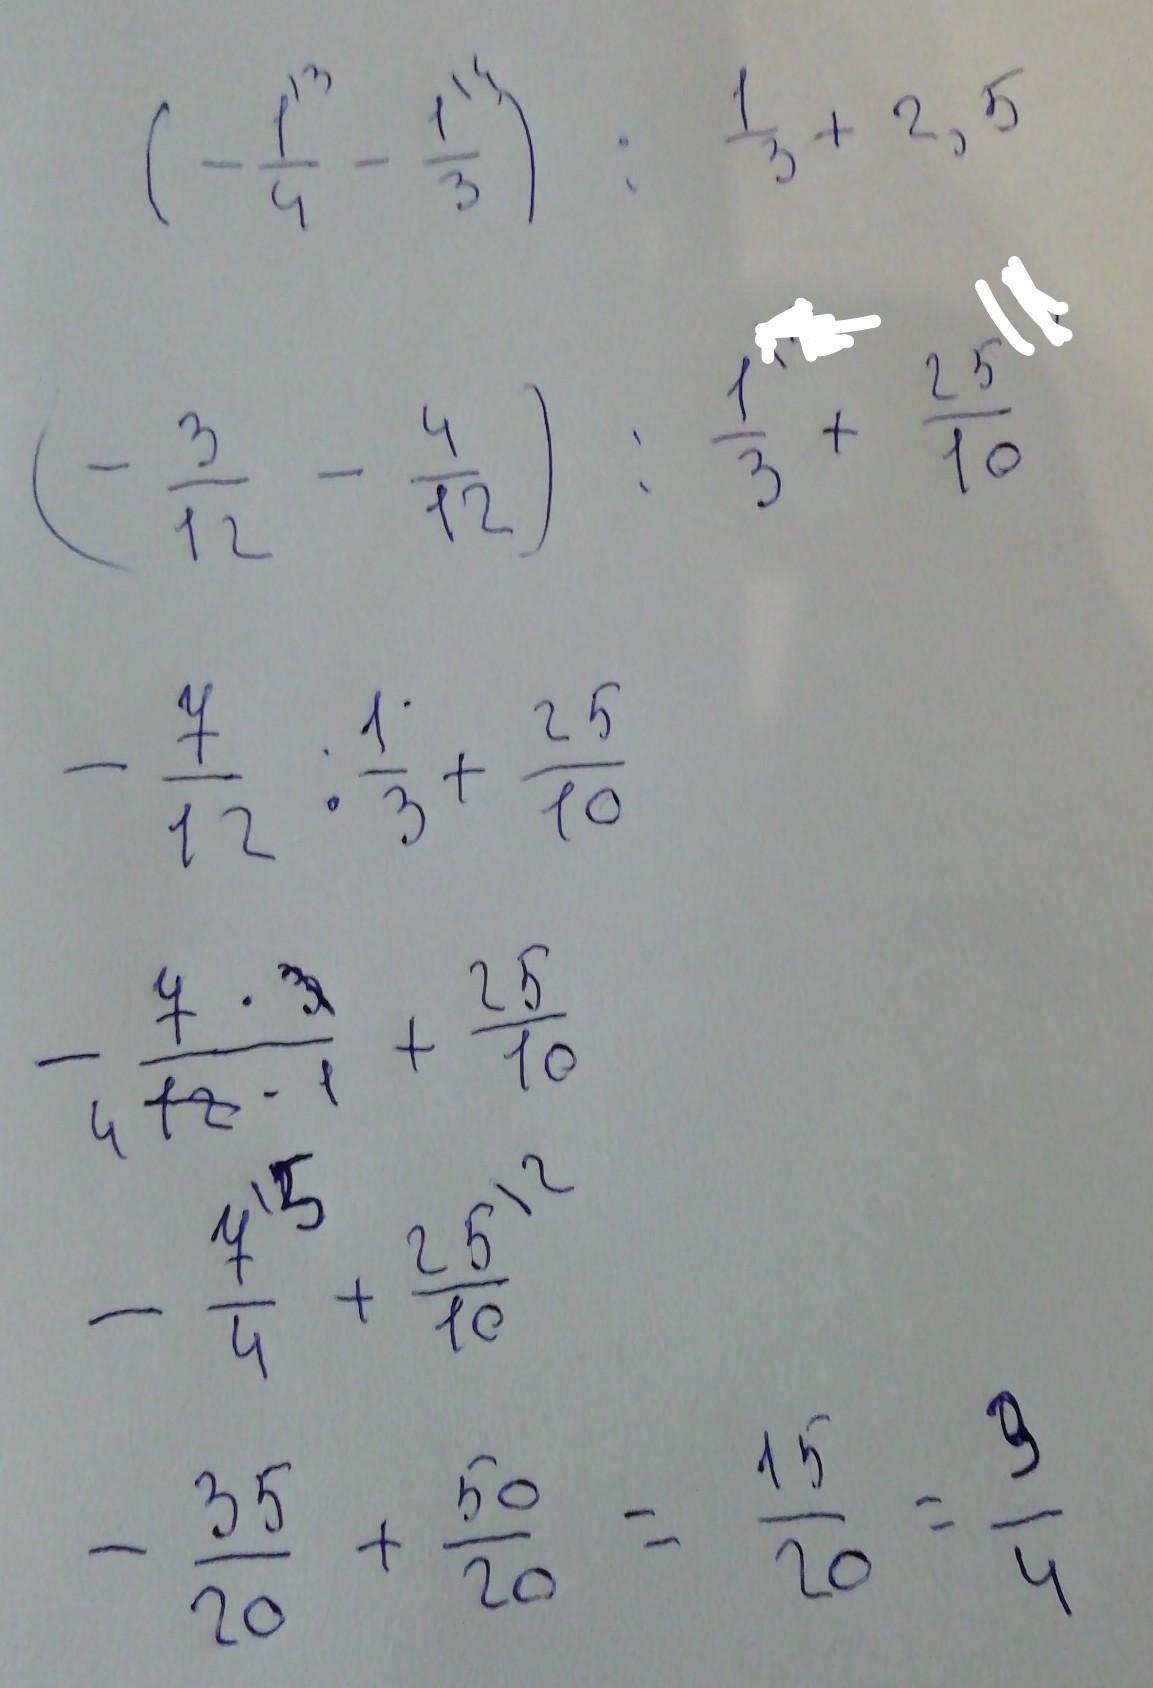 (-1/4\3 - 1/3\4) : 1/3 + 2,5
(-3/12 - 4/12) : 1/3 + 25/10
-7/12 : 1/3 + 25/10
-7·3/12·1 4 + 25/10
-7/4\5 + 25/10\2
-35/20 + 50/20 = 15/20 = 3/4